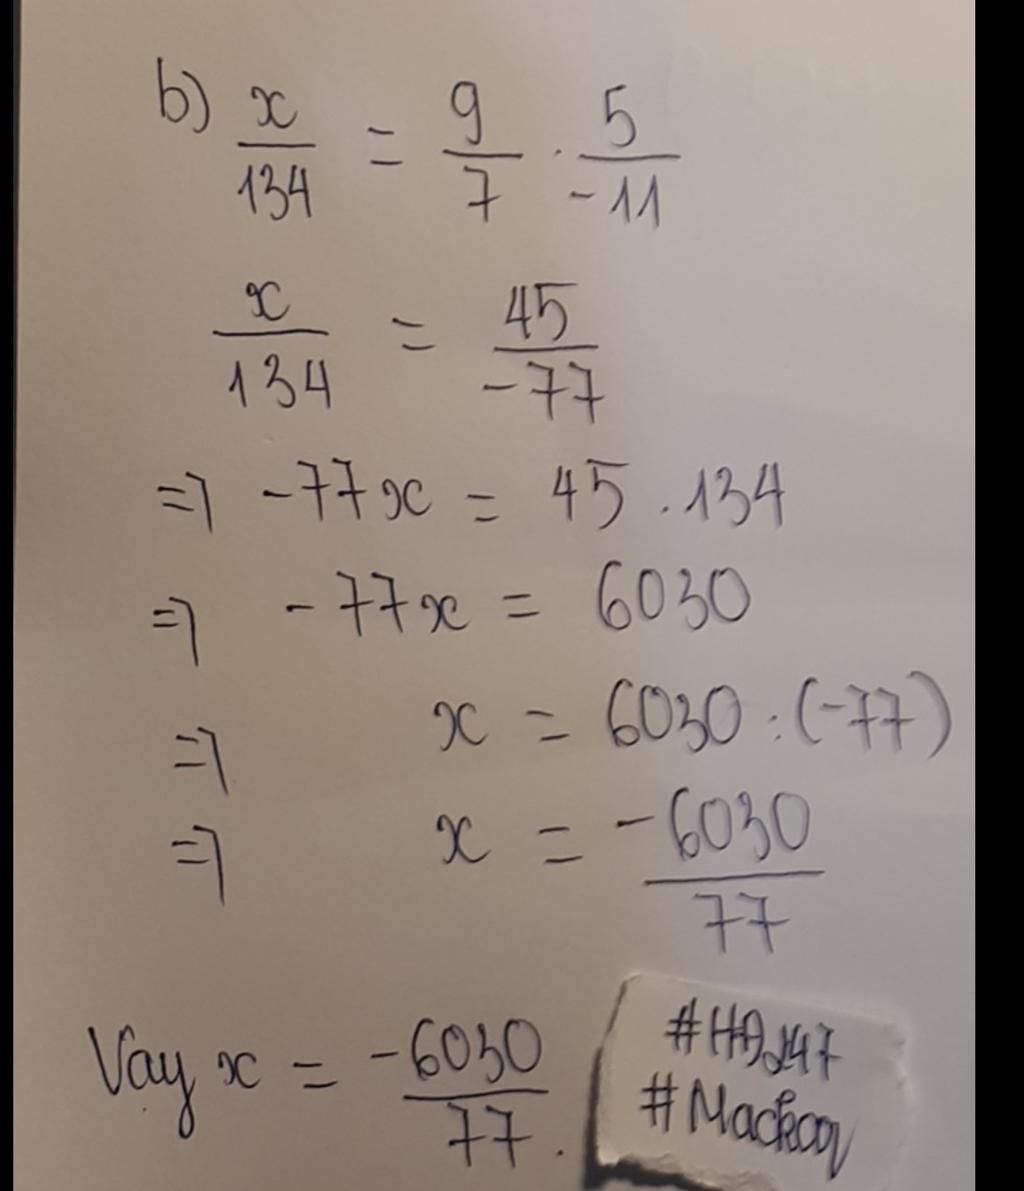 b) x/134 = 9/7 . 5/-11
x/134 = 45/-77
=> -77x = 45 . 134
=> -77x = 6030
=> x = 6030 : (-77)
=> x = -6030/77
Vay x = -6030/77.
#Mackooy